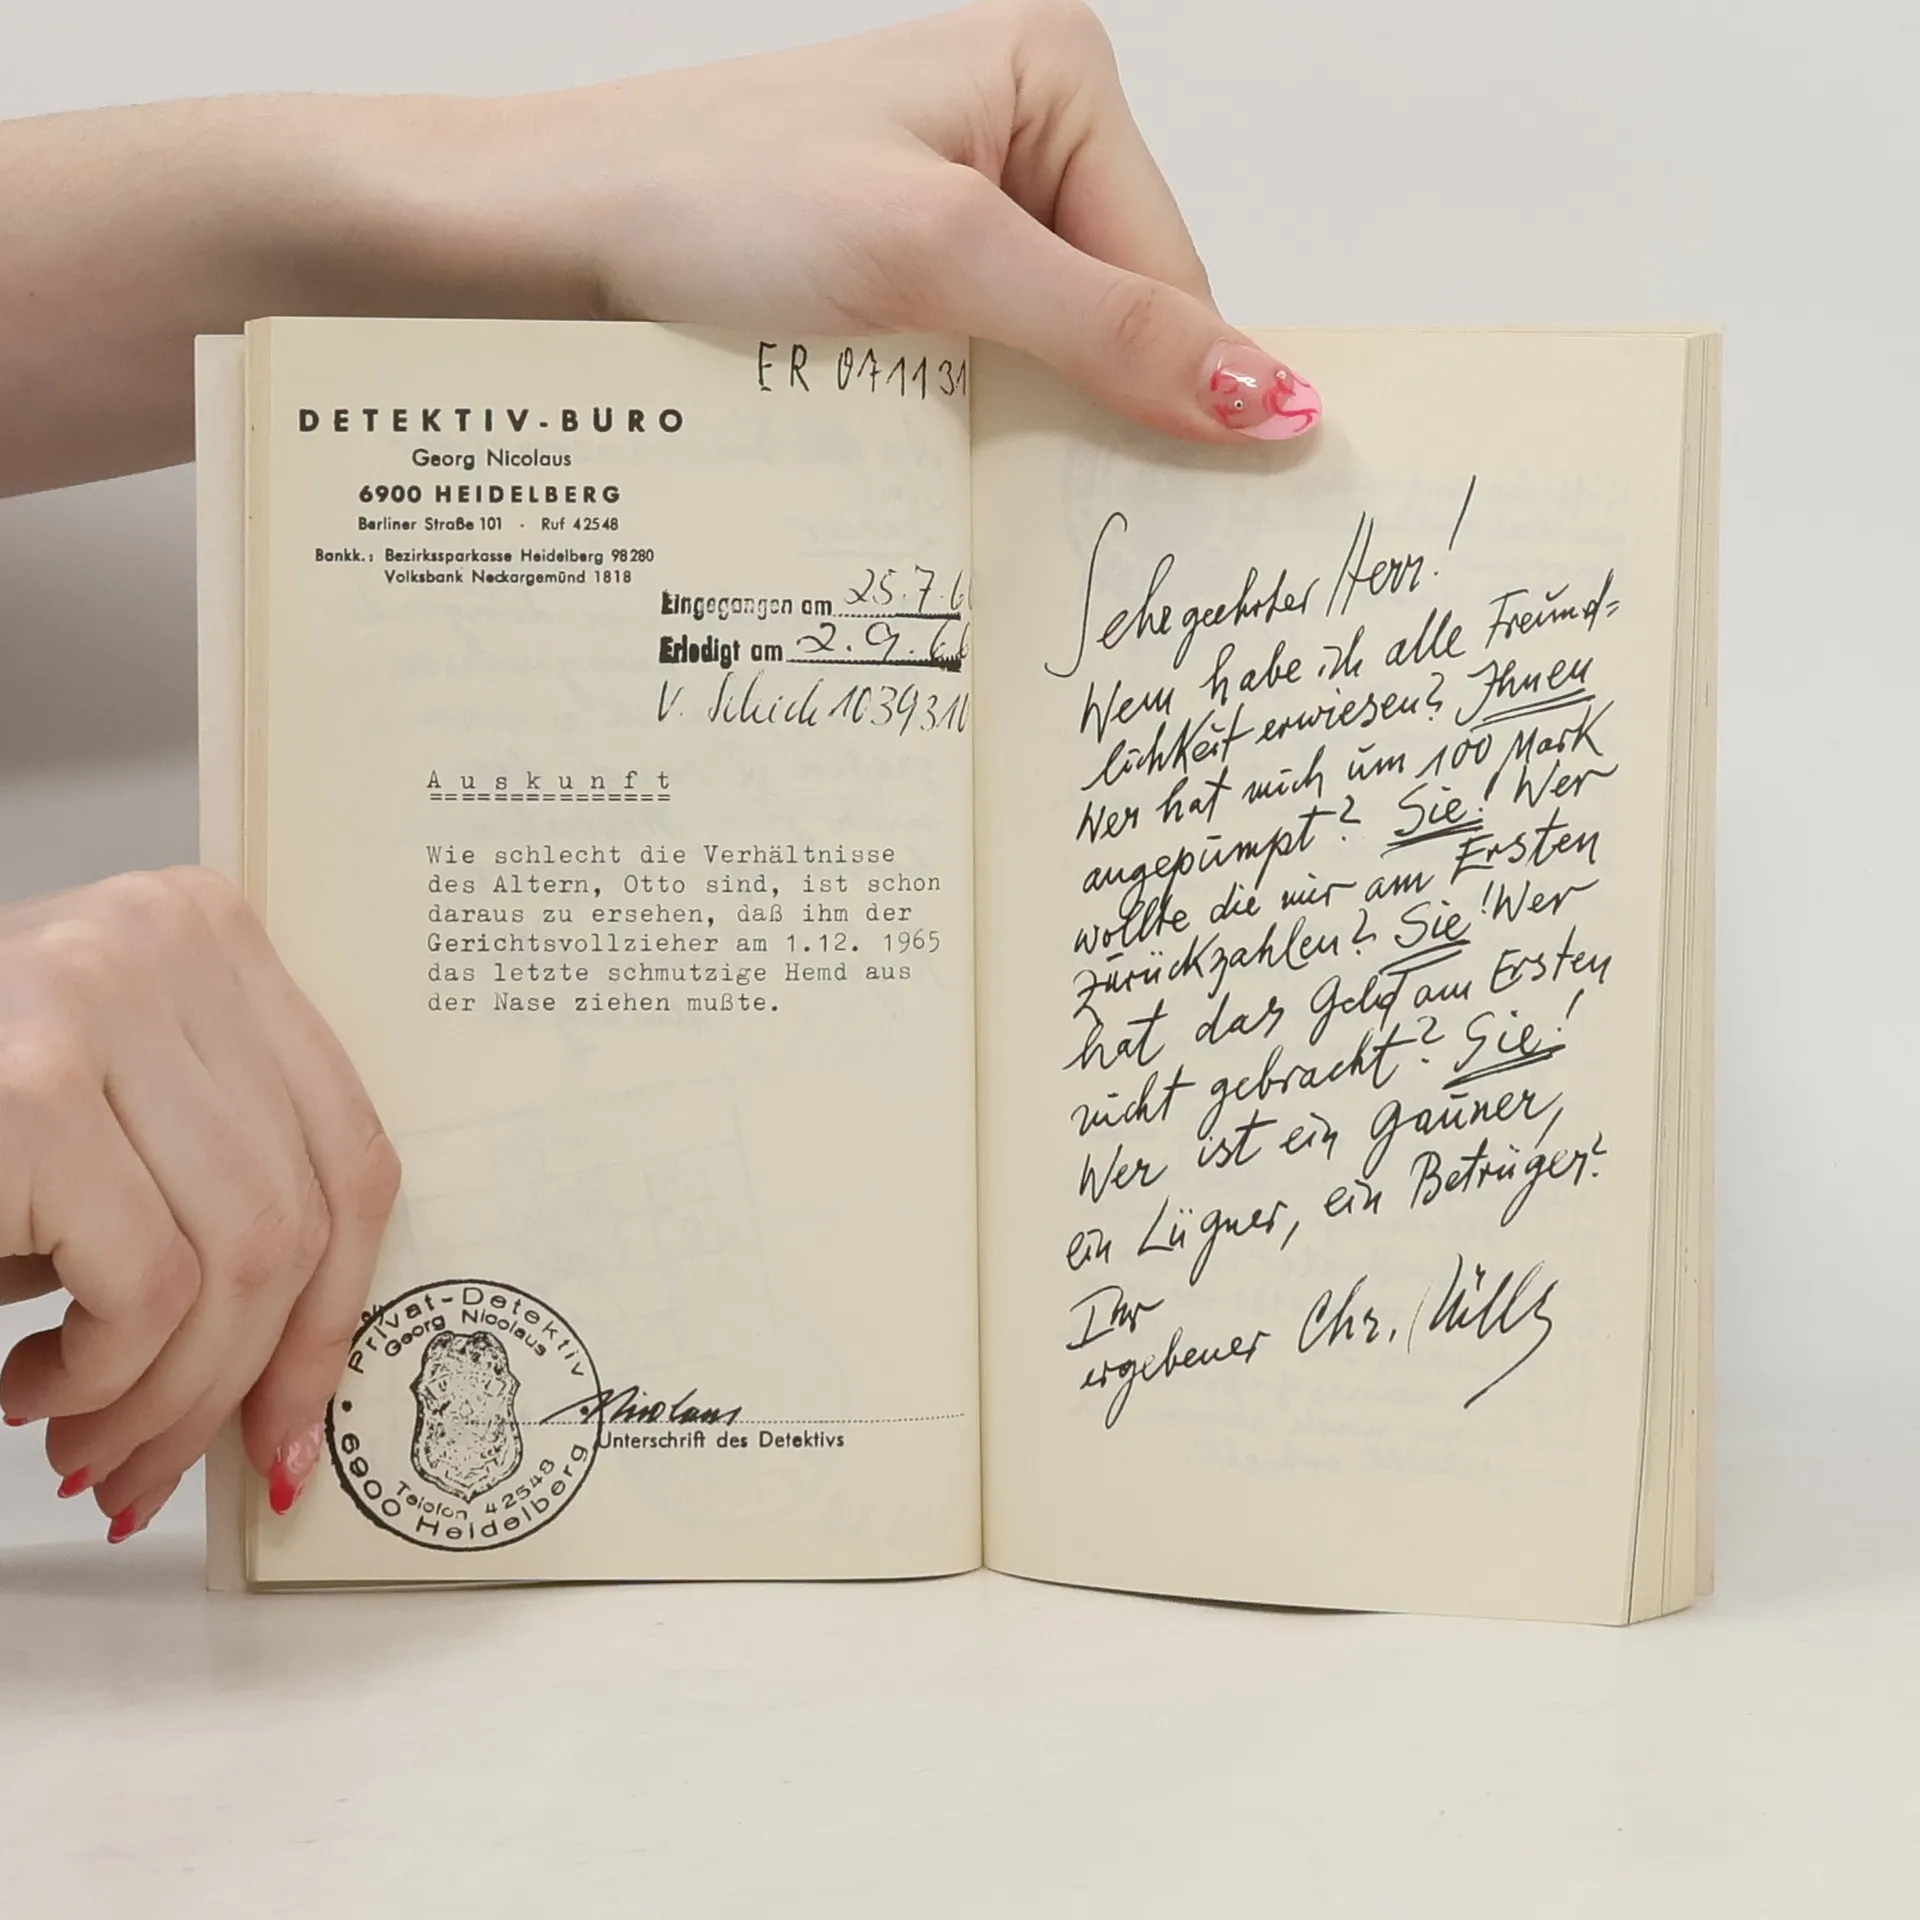 ER 071131
DETEKTIV-BÜRO
Georg Nicolaus
6900 HEIDELBERG
Berliner Straße 101 · Ruf 42548
Bankk.: Bezirkssparkasse Heidelberg 98280
Volksbank Neckargemünd 1818
Eingegangen am 25.7.6
Erledigt am 2.9.66
V. Schick 1039310
Auskunft
Wie schlecht die Verhältnisse
des Altern, Otto sind, ist schon
daraus zu ersehen, daß ihm der
Gerichtsvollzieher am 1.12. 1965
das letzte schmutzige Hemd aus
der Nase ziehen mußte.
Privat-Detektiv
Georg Nicolaus
Telefon 42548
6900 Heidelberg
Nicolaus
Unterschrift des Detektivs
Sehr geehrter Herr!
Wem habe ich alle Freund=
lichkeit erwiesen? Ihnen!
Wer hat mich um 100 Mark
angepumpt? Sie! Wer
wollte die mir am Ersten
zurückzahlen? Sie! Wer
hat das Geld am Ersten
nicht gebracht? Sie!
Wer ist ein Gauner,
ein Lügner, ein Betrüger?
Ihr
ergebener Chr.